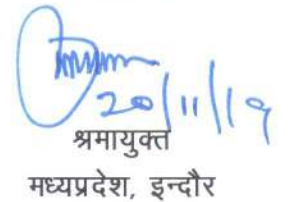 20/11/19
श्रमायुक्त
मध्यप्रदेश, इन्दौर